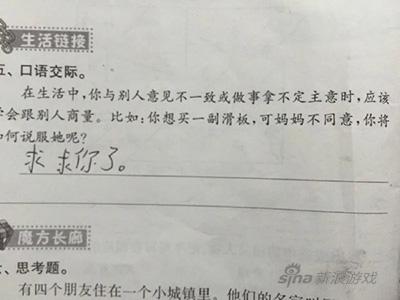 生活链接
五、口语交际。
在生活中，你与别人意见不一致或做事拿不定主意时，应该
学会跟别人商量。比如：你想买一副滑板，可妈妈不同意，你将
如何说服她呢？
求求你了。
魔方长廊
、思考题。
sina新浪游戏
有四个朋友住在一个小城镇里。他们的名字叫